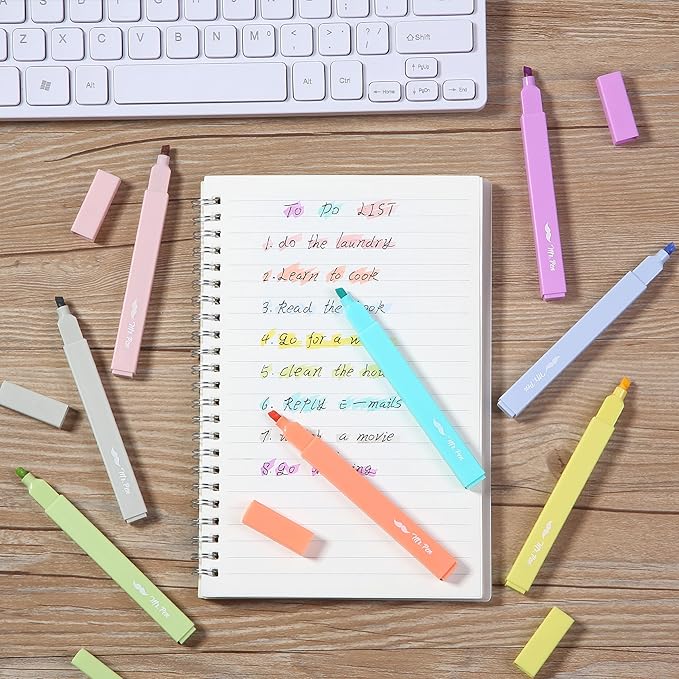 Z X C V B N M < , > . ? / ⇧ Shift ↑ PgUp
Alt Alt Ctrl ← Home ↓ PgDn → End
To Do LIST
1. do the laundry
2. Learn to cook
3. Read the
4. go for a
5. clean the
6. REPLY E-mails
7. a movie
8. go
Mr. Pen
Mr. Pen
Mr. Pen
Mr. Pen
Mr. Pen
Mr. Pen
Mr. Pen
Mr. Pen